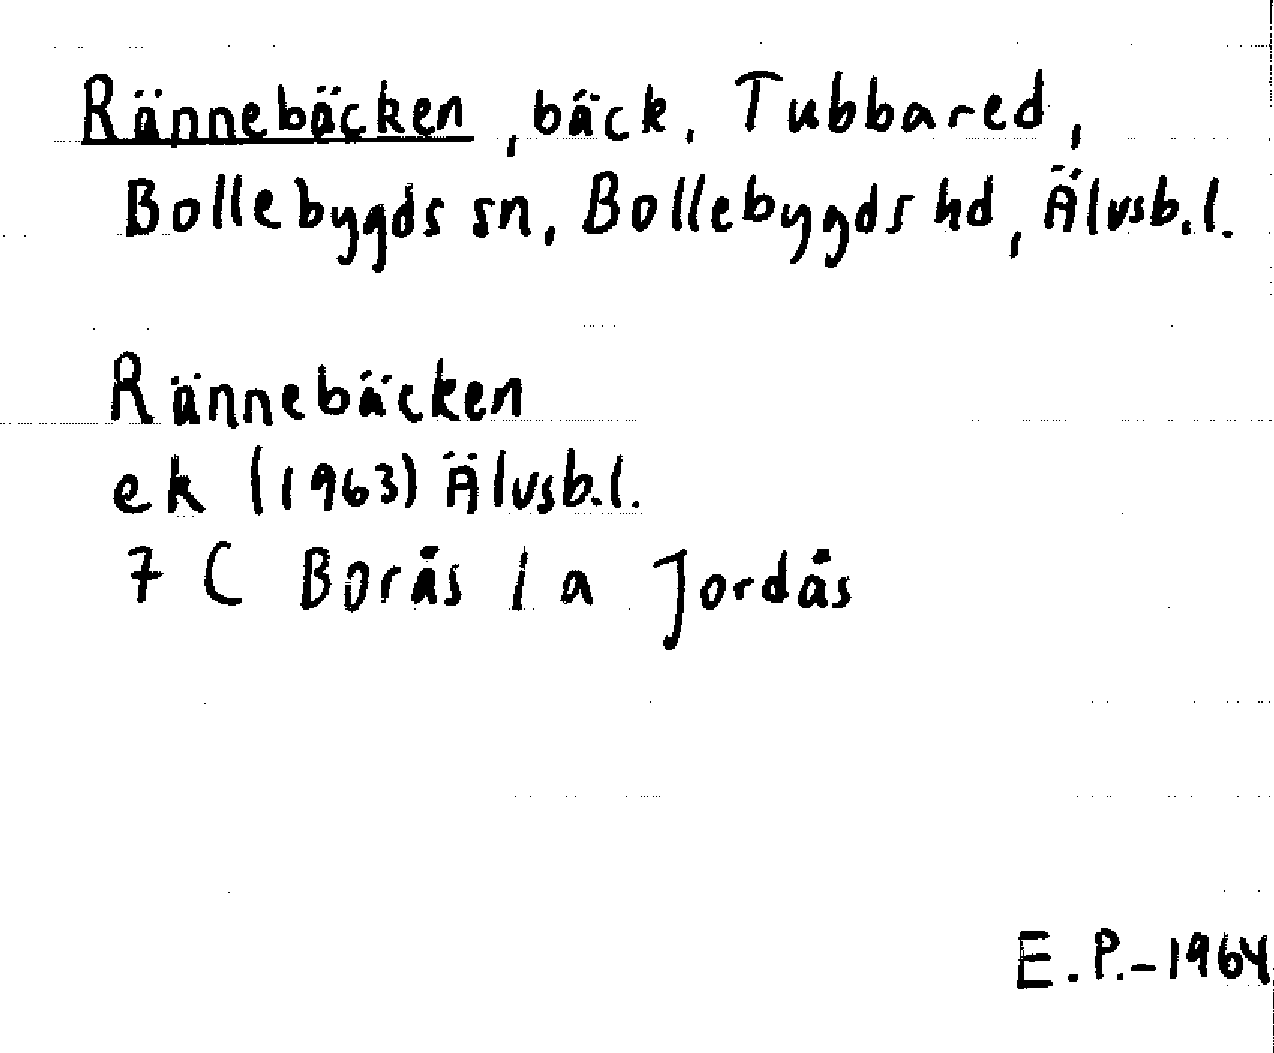 Rännebäcken, bäck, Tubbared,
Bollebygds sn, Bollebygds hd, Älvsb.l.
Rännebäcken
ek (1963) Älvsb.l.
7 C Borås 1 a Jordås
E.P.-1964